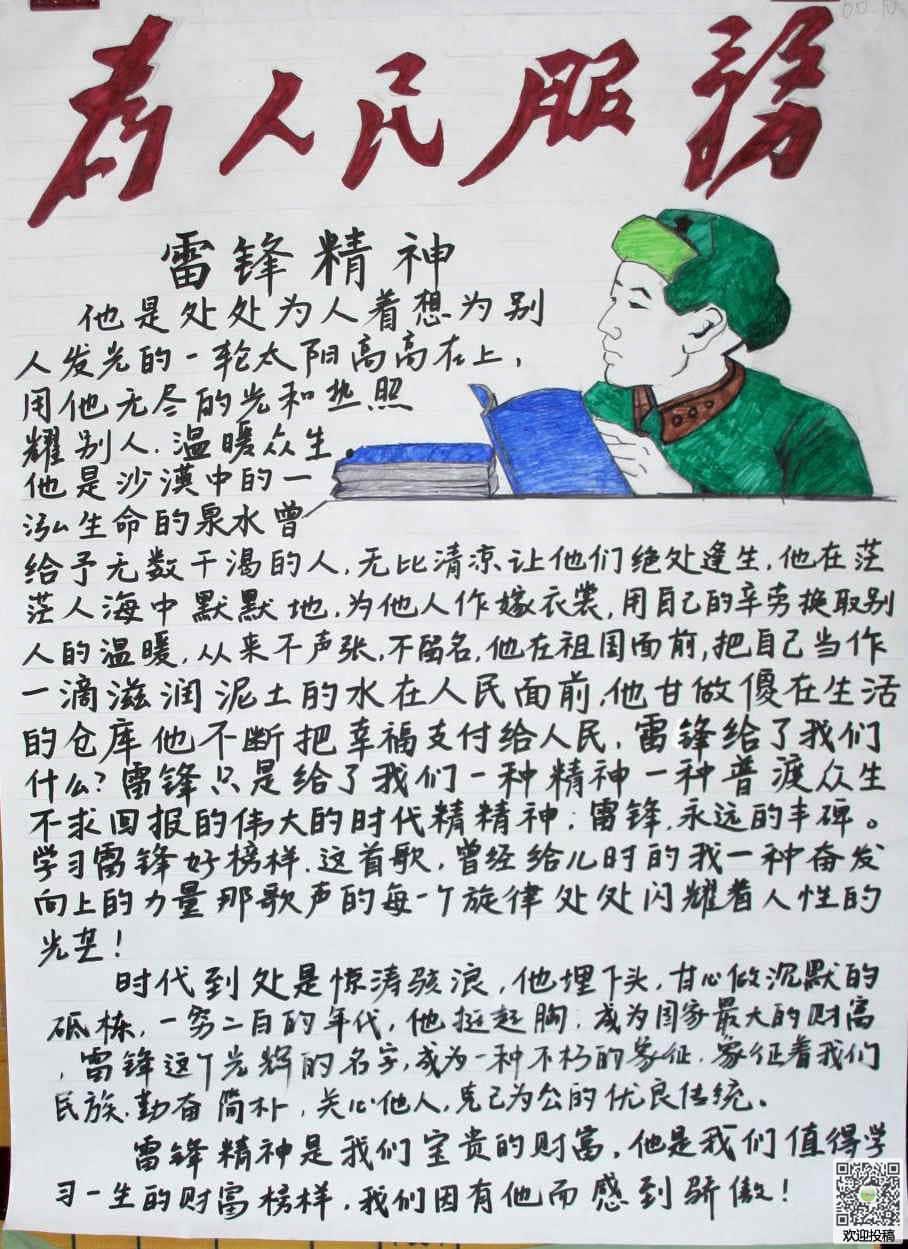 為人民服務
雷锋精神
他是处处为人着想为别
人发光的一轮太阳高高在上，
用他无尽的光和热照
耀别人.温暖众生
他是沙漠中的一
泓生命的泉水曾
给予无数干渴的人.无比清凉让他们绝处逢生.他在茫
茫人海中默默地.为他人作嫁衣裳,用自己的辛劳换取别
人的温暖,从来不声张,不留名,他在祖国面前,把自己当作
一滴滋润泥土的水在人民面前,他甘做傻在生活
的仓库他不断把幸福支付给人民,雷锋给了我们
什么?雷锋只是给了我们一种精神一种普渡众生
不求回报的伟大的时代精精神;雷锋,永远的丰碑。
学习雷锋好榜样.这首歌,曾经给儿时的我一种奋发
向上的力量那歌声的每一个旋律处处闪耀着人性的
光芒!
时代到处是惊涛骇浪,他埋下头,甘心做沉默的
砥栋,一穷二白的年代,他挺起胸;成为国家最大的财富
,雷锋这个光辉的名字,成为一种不朽的象征.象征着我们
民族.勤奋简朴,关心他人,克己为公的优良传统。
雷锋精神是我们宝贵的财富,他是我们值得学
习一生的财富榜样,我们因有他而感到骄傲!
欢迎投稿